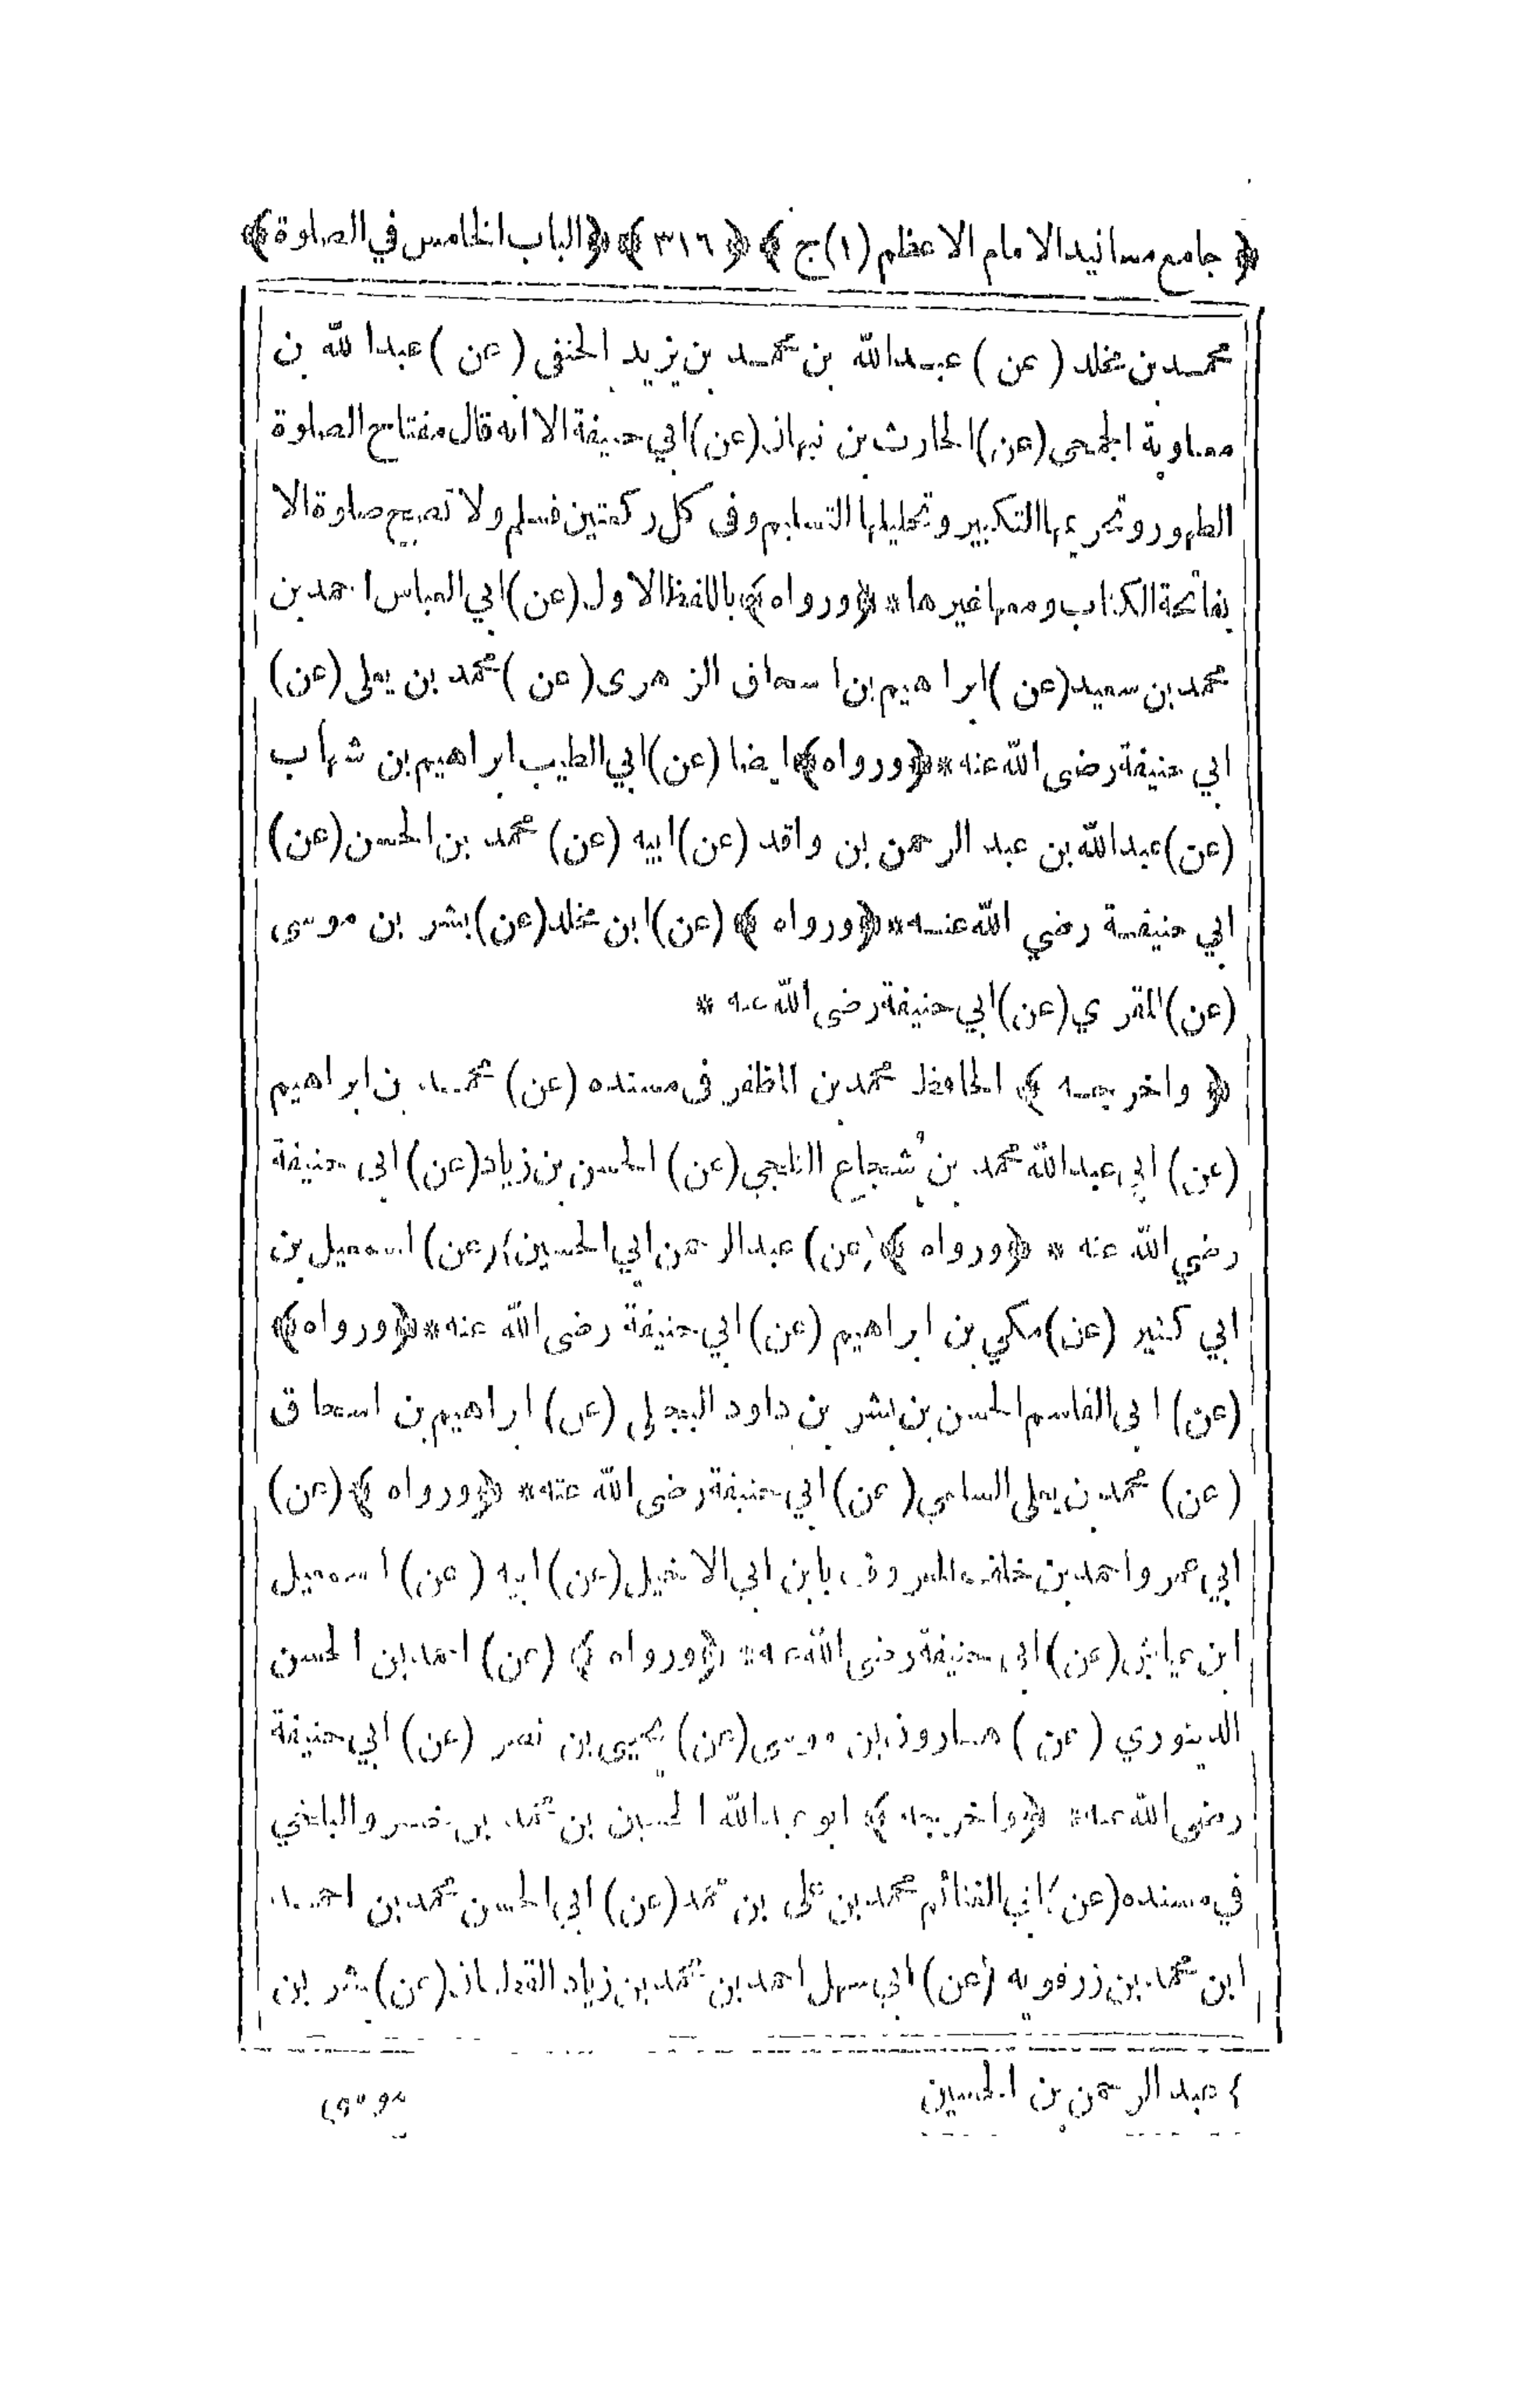 ﴿ جامع مسانيد الامام الاعظم (١) ج ﴾ ﴿ ٣١٦ ﴾ ﴿ الباب الخامس في الصلوة ﴾
محمد بن مخلد (عن) عبد الله بن محمد بن يزيد الحنفى (عن) عبد الله بن
معاوية الجمحى (عن) الحارث بن نبهان (عن) ابي حنيفة الا انه قال مفتاح الصلوة
الطهور وتحريمها التكبير وتحليلها التسليم وفى كل ركعتين فسلم ولا تصح صلوة الا
بفاتحة الكتاب ومعها غيرها * ﴿ورواه﴾ باللفظ الاول (عن) ابي العباس احمد بن
محمد بن سعيد (عن) ابراهيم بن اسحاق الزهرى (عن) محمد بن يعلى (عن)
ابي حنيفة رضى الله عنه * ﴿ورواه﴾ ايضا (عن) ابي الطيب ابراهيم بن شهاب
(عن) عبد الله بن عبد الرحمن بن واقد (عن) ابيه (عن) محمد بن الحسن (عن)
ابي حنيفة رضي الله عنه * ﴿ورواه﴾ (عن) ابن مخلد (عن) بشر بن موسى
(عن) المقري (عن) ابي حنيفة رضى الله عنه *
﴿ واخرجه ﴾ الحافظ محمد بن المظفر فى مسنده (عن) محمد بن ابراهيم
(عن) ابي عبد الله محمد بن شجاع الثلجي (عن) الحسن بن زياد (عن) ابى حنيفة
رضي الله عنه * ﴿ورواه﴾ (عن) عبد الرحمن ابي الحسين ٤ (عن) اسمعيل بن
ابي كثير (عن) مكي بن ابراهيم (عن) ابي حنيفة رضى الله عنه * ﴿ورواه﴾
(عن) ابى القاسم الحسن بن بشر بن داود البجلى (عن) ابراهيم بن اسحاق
(عن) محمد بن يعلى السلمي (عن) ابي حنيفة رضى الله عنه * ﴿ورواه﴾ (عن)
ابي عمرو احمد بن خلف المعروف بابن ابي الاخيل (عن) ابيه (عن) اسمعيل
ابن عياش (عن) ابي حنيفة رضى الله عنه * ﴿ورواه﴾ (عن) احمد بن الحسن
الدينوري (عن) هارون بن موسى (عن) يحيى بن نصر (عن) ابي حنيفة
رضى الله عنه * ﴿واخرجه﴾ ابو عبد الله الحسين بن محمد بن خسرو البلخي
في مسنده (عن) ابي الغنائم محمد بن على بن محمد (عن) ابي الحسن محمد بن احمد
ابن محمد بن زرقويه (عن) ابي سهل احمد بن محمد بن زياد القطان (عن) بشر بن
٤ عبد الرحمن بن الحسين
موسى